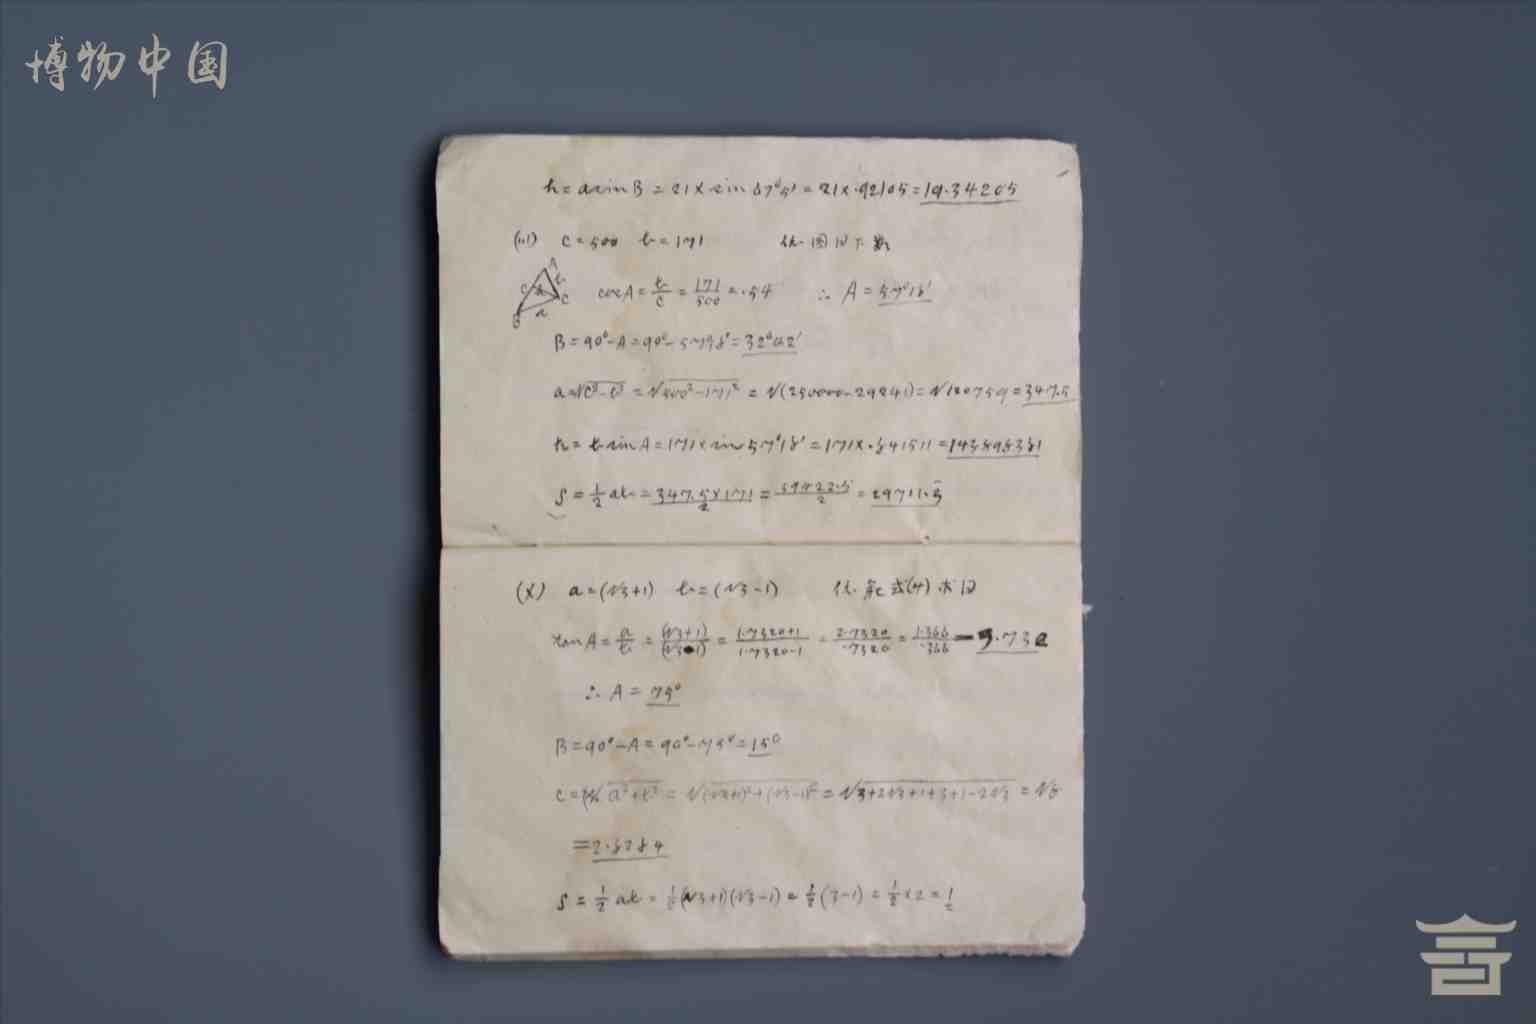 博物中国
h = a sin B = 21 × sin 67°5′ = 21 × .92105 = 19.34205
(III) C = 500 b = 171
A
C h b C
B a
cos A = b/c = 171/500 = .54 ∴ A = 57°18′
B = 90° - A = 90° - 57°18′ = 32°42′
a = √c² - b² = √500² - 171² = √(250000 - 29241) = √120759 = 347.5
h = b sin A = 171 × sin 57°18′ = 171 × .84151 = 143.898381
S = 1/2 ab = 347.5 × 171/2 = 59422.5/2 = 29711.3
(X) a = (√3+1) b = (√3-1)
tan A = a/b = (√3+1)/(√3-1) = 1.7320+1/1.7320-1 = 2.7320/.7320 = 1.366/.366 = 3.732
∴ A = 75°
B = 90° - A = 90° - 75° = 15°
C = √a²+b² = √(√3+1)²+(√3-1)² = √3+2√3+1+3+1-2√3 = √8
= 2.8284
S = 1/2 ab = 1/2 (√3+1)(√3-1) = 1/2 (3-1) = 1/2 × 2 = 1